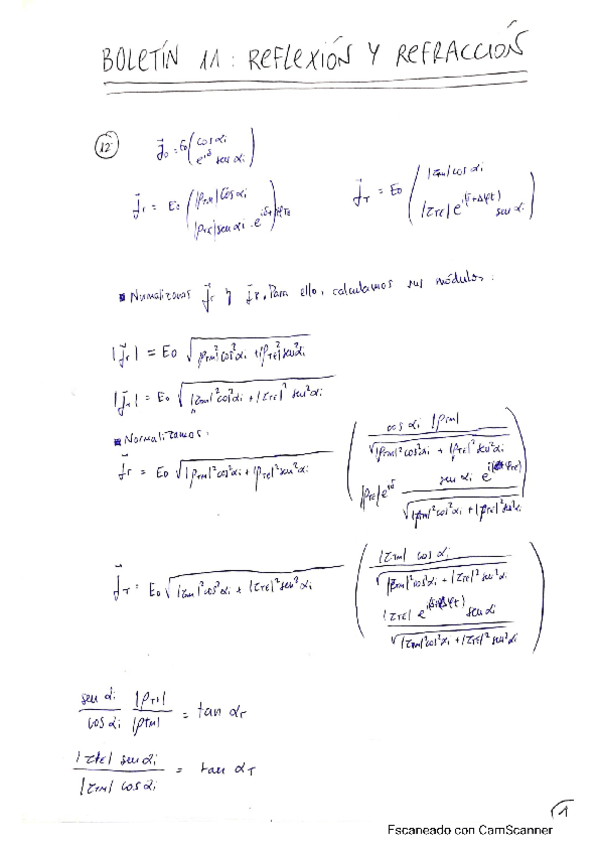 BOLETÍN 11: REFLEXIÓN Y REFRACCIÓN
12 J⃗o = Eo (cos αi
e^iδ sen αi)
J⃗r = Eo (|ρTM| cos αi
|ρTE| sen αi · e^i(δ+ φTE)
J⃗T = Eo (|τTM| cos αi
|τTE| e^i(δ+Δφt) sen αi)
▪ Normalizamos J⃗r y J⃗T. Para ello, calculamos sus módulos:
|J⃗r| = Eo √|ρTM|² cos² αi + |ρTE|² sen² αi
|J⃗T| = Eo √|τTM|² cos² αi + |τTE|² sen² αi
▪ Normalizamos:
J⃗r = Eo √|ρTM|² cos² αi + |ρTE|² sen² αi
cos αi |ρTM|
√|ρTM|² cos² αi + |ρTE|² sen² αi
|ρTE| e^iδ sen αi
√|ρTM|² cos² αi + |ρTE|² sen² αi
J⃗T = Eo √|τTM|² cos² αi + |τTE|² sen² αi
|τTM| cos αi
√|τTM|² cos² αi + |τTE|² sen² αi
|τTE| sen αi
√|τTM|² cos² αi + |τTE|² sen² αi
sen αi |ρTE|
cos αi |ρTM| = tan αr
|τTE| sen αi
|τTM| cos αi = tan αT
1
Escaneado con CamScanner